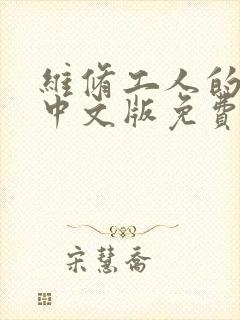 維脩工人的
中文版免費
宋慧喬